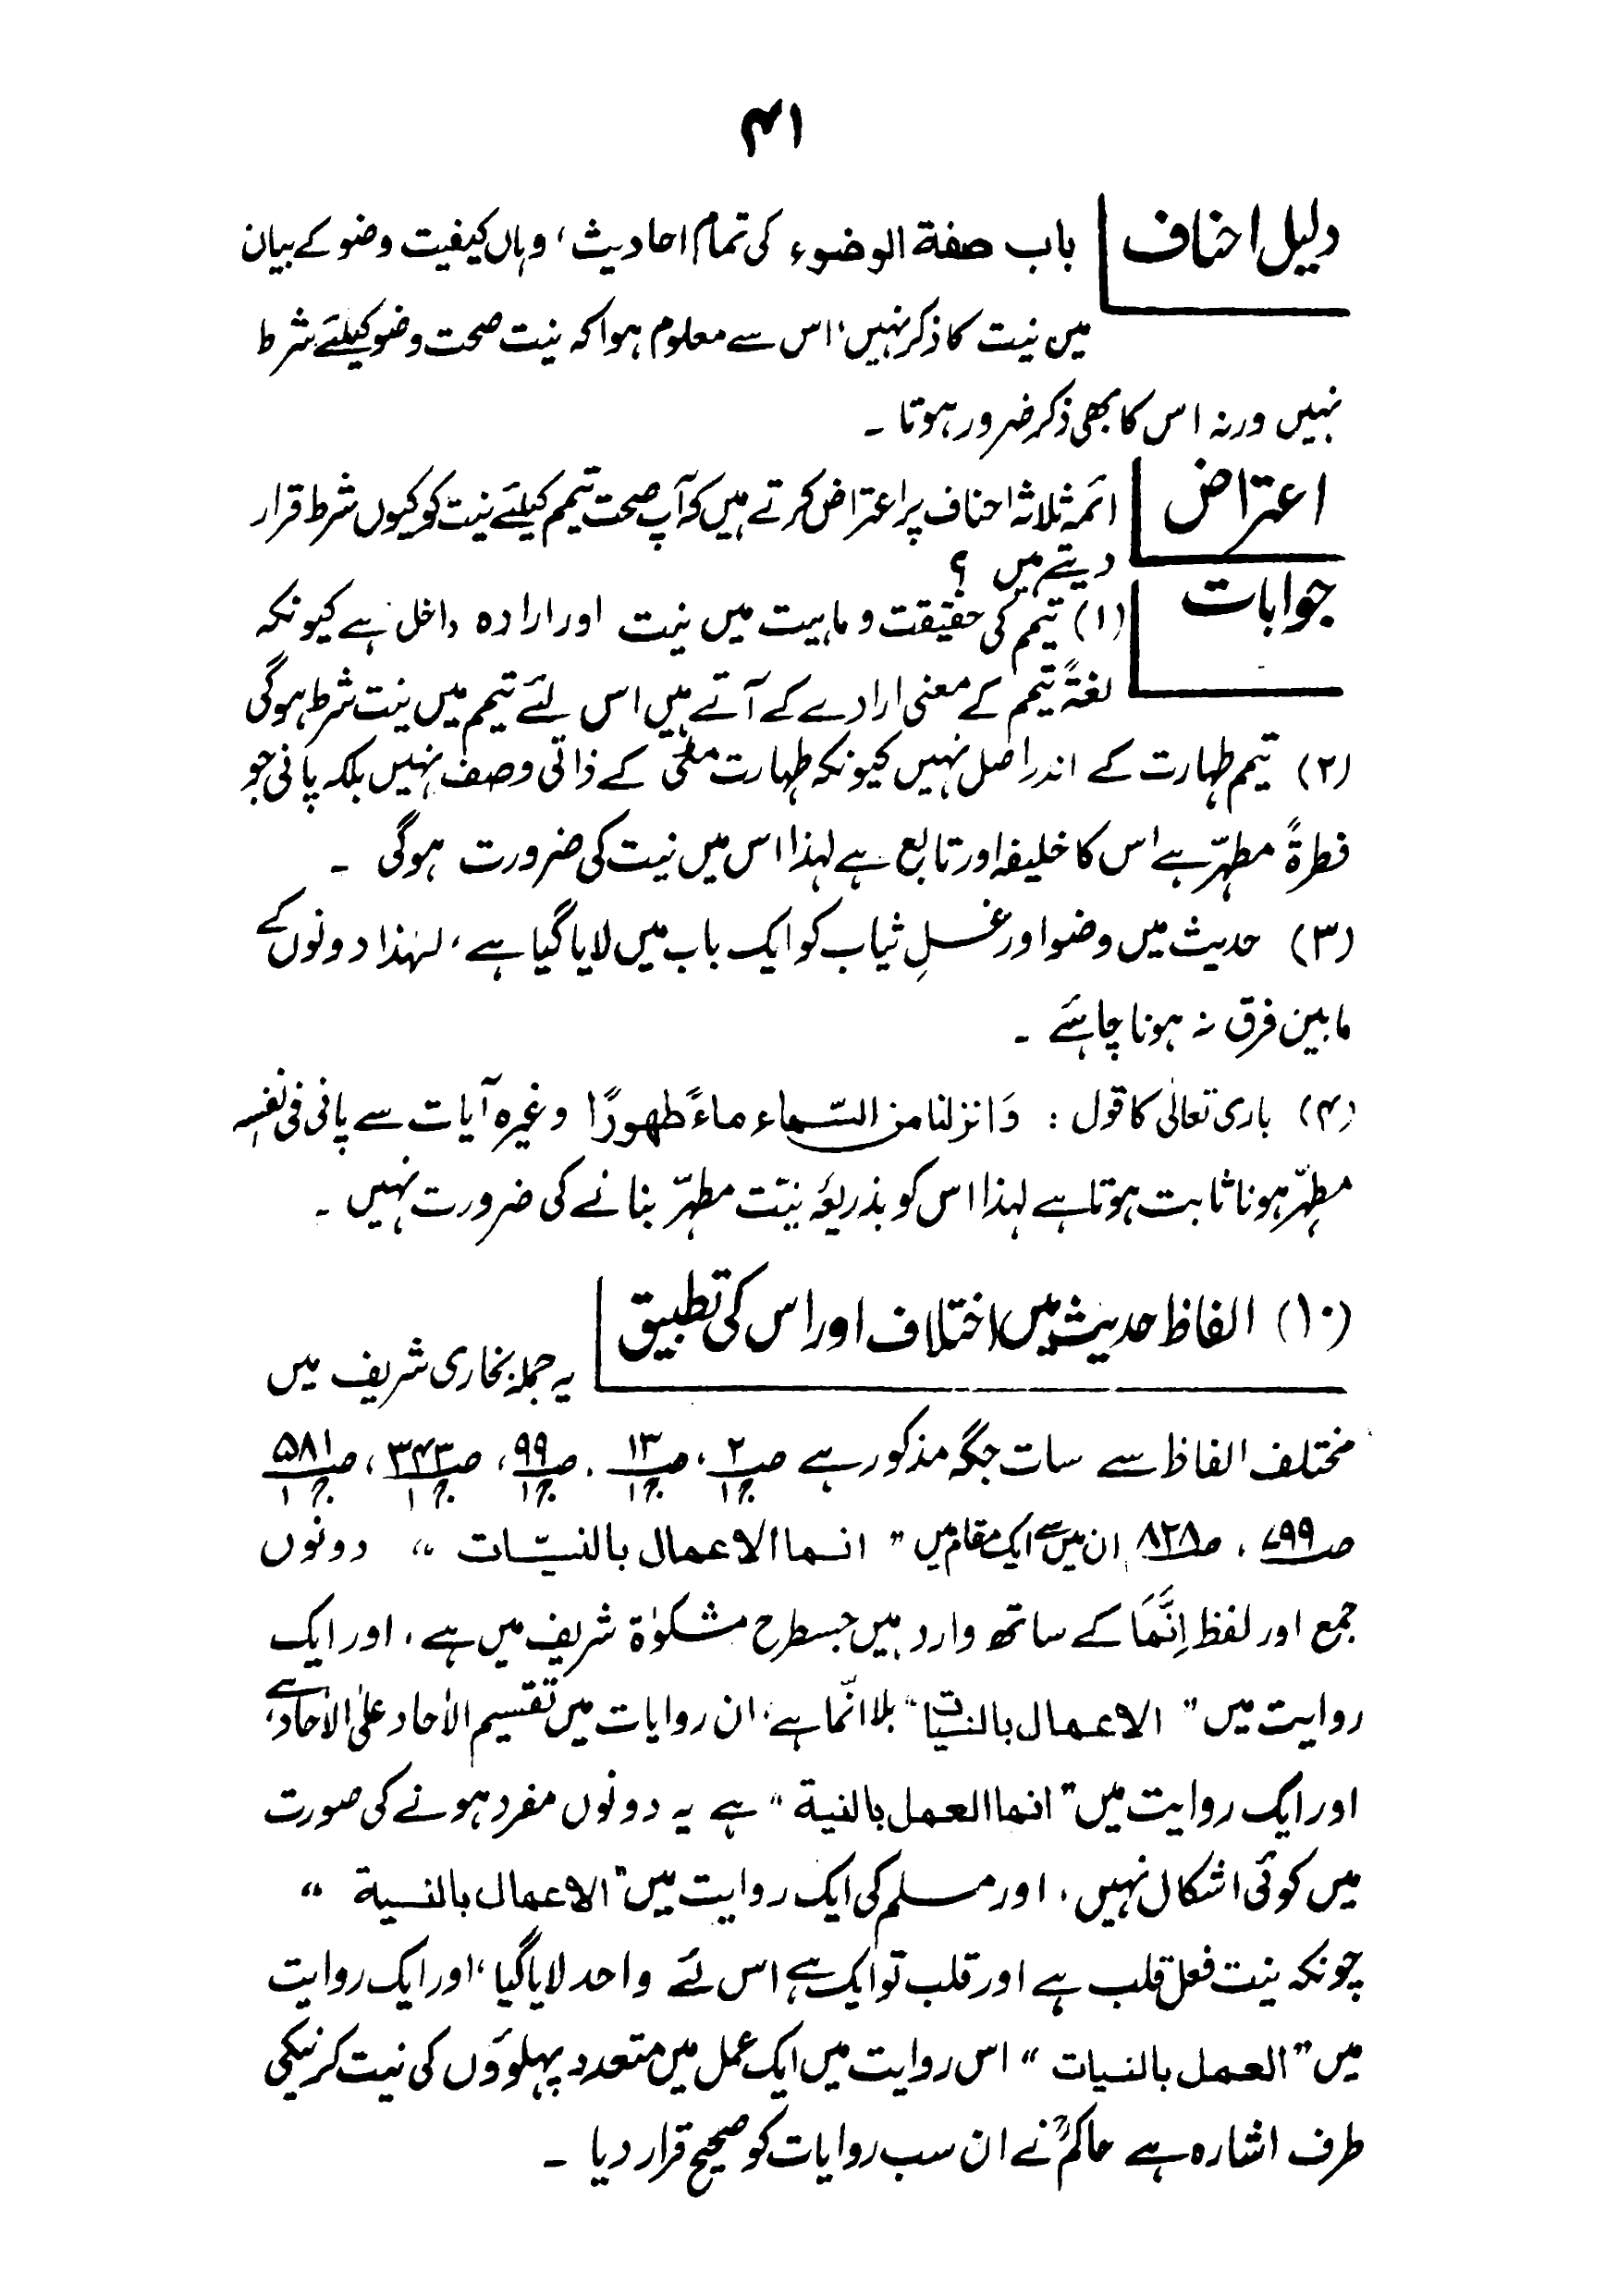 ۴۱
دلیل احناف باب صفة الوضوء کی تمام احادیث، وہاں کیفیت وضو کے بیان
میں نیت کا ذکر نہیں، اس سے معلوم ہوا کہ نیت صحت وضو کیلئے شرط
نہیں ورنہ اس کا بھی ذکر ضرور ہوتا ۔
اعتراض ائمہ ثلاثہ احناف پر اعتراض کرتے ہیں کہ آپ صحت تیمم کیلئے نیت کو کیوں شرط قرار
دیتے ہیں ؟
جوابات (۱) تیمم کی حقیقت و ماہیت میں نیت اور ارادہ داخل ہے کیونکہ
لغۃً تیمم کے معنی ارادے کے آتے ہیں اس لئے تیمم میں نیت شرط ہوگی
(۲) تیمم طہارت کے اندر اصل نہیں کیونکہ طہارت مٹی کے ذاتی وصف نہیں بلکہ پانی جو
فطرۃً مطہّر ہے اس کا خلیفہ اور تابع ہے لہذا اس میں نیت کی ضرورت ہوگی ۔
(۳) حدیث میں وضو اور غسلِ ثیاب کو ایک باب میں لایا گیا ہے، لہٰذا دونوں کے
مابین فرق نہ ہونا چاہئے ۔
(۴) باری تعالٰی کا قول : وَانزلنا من السّماء ماءً طهورًا وغیرہ آیات سے پانی فی نفسہ
مطہّر ہونا ثابت ہوتا ہے لہذا اس کو بذریعۂ نیّت مطہّر بنانے کی ضرورت نہیں ۔
(۱۰) الفاظ حدیث میں اختلاف اور اس کی تطبیق
یہ جملہ بخاری شریف میں
مختلف الفاظ سے سات جگہ مذکور ہے ص۲ ج۱، ص۱۳ ج۱، ص۹۹ ج۱، ص۳۴۳ ج۱، ص۵۸۱ ج۱
ص۷۹۹، ص۸۲۸ ان میں سے ایک مقام میں " انما الاعمال بالنیّات " دونوں
جمع اور لفظ اِنَّمَا کے ساتھ وارد ہیں جسطرح مشکوٰۃ شریف میں ہے، اور ایک
روایت میں " الاعمال بالنیات " بلا انّما ہے، ان روایات میں تقسیم الأحاد علیٰ الأحاد ہے،
اور ایک روایت میں " انما العمل بالنیة " ہے یہ دونوں مفرد ہونے کی صورت
میں کوئی اشکال نہیں، اور مسلم کی ایک روایت میں " الاعمال بالنیة "
چونکہ نیت فعل قلب ہے اور قلب تو ایک ہے اس لئے واحد لایا گیا، اور ایک روایت
میں " العمل بالنیات " اس روایت میں ایک عمل میں متعدد پہلوؤں کی نیت کرنیکی
طرف اشارہ ہے حاکمؒ نے ان سب روایات کو صحیح قرار دیا ۔